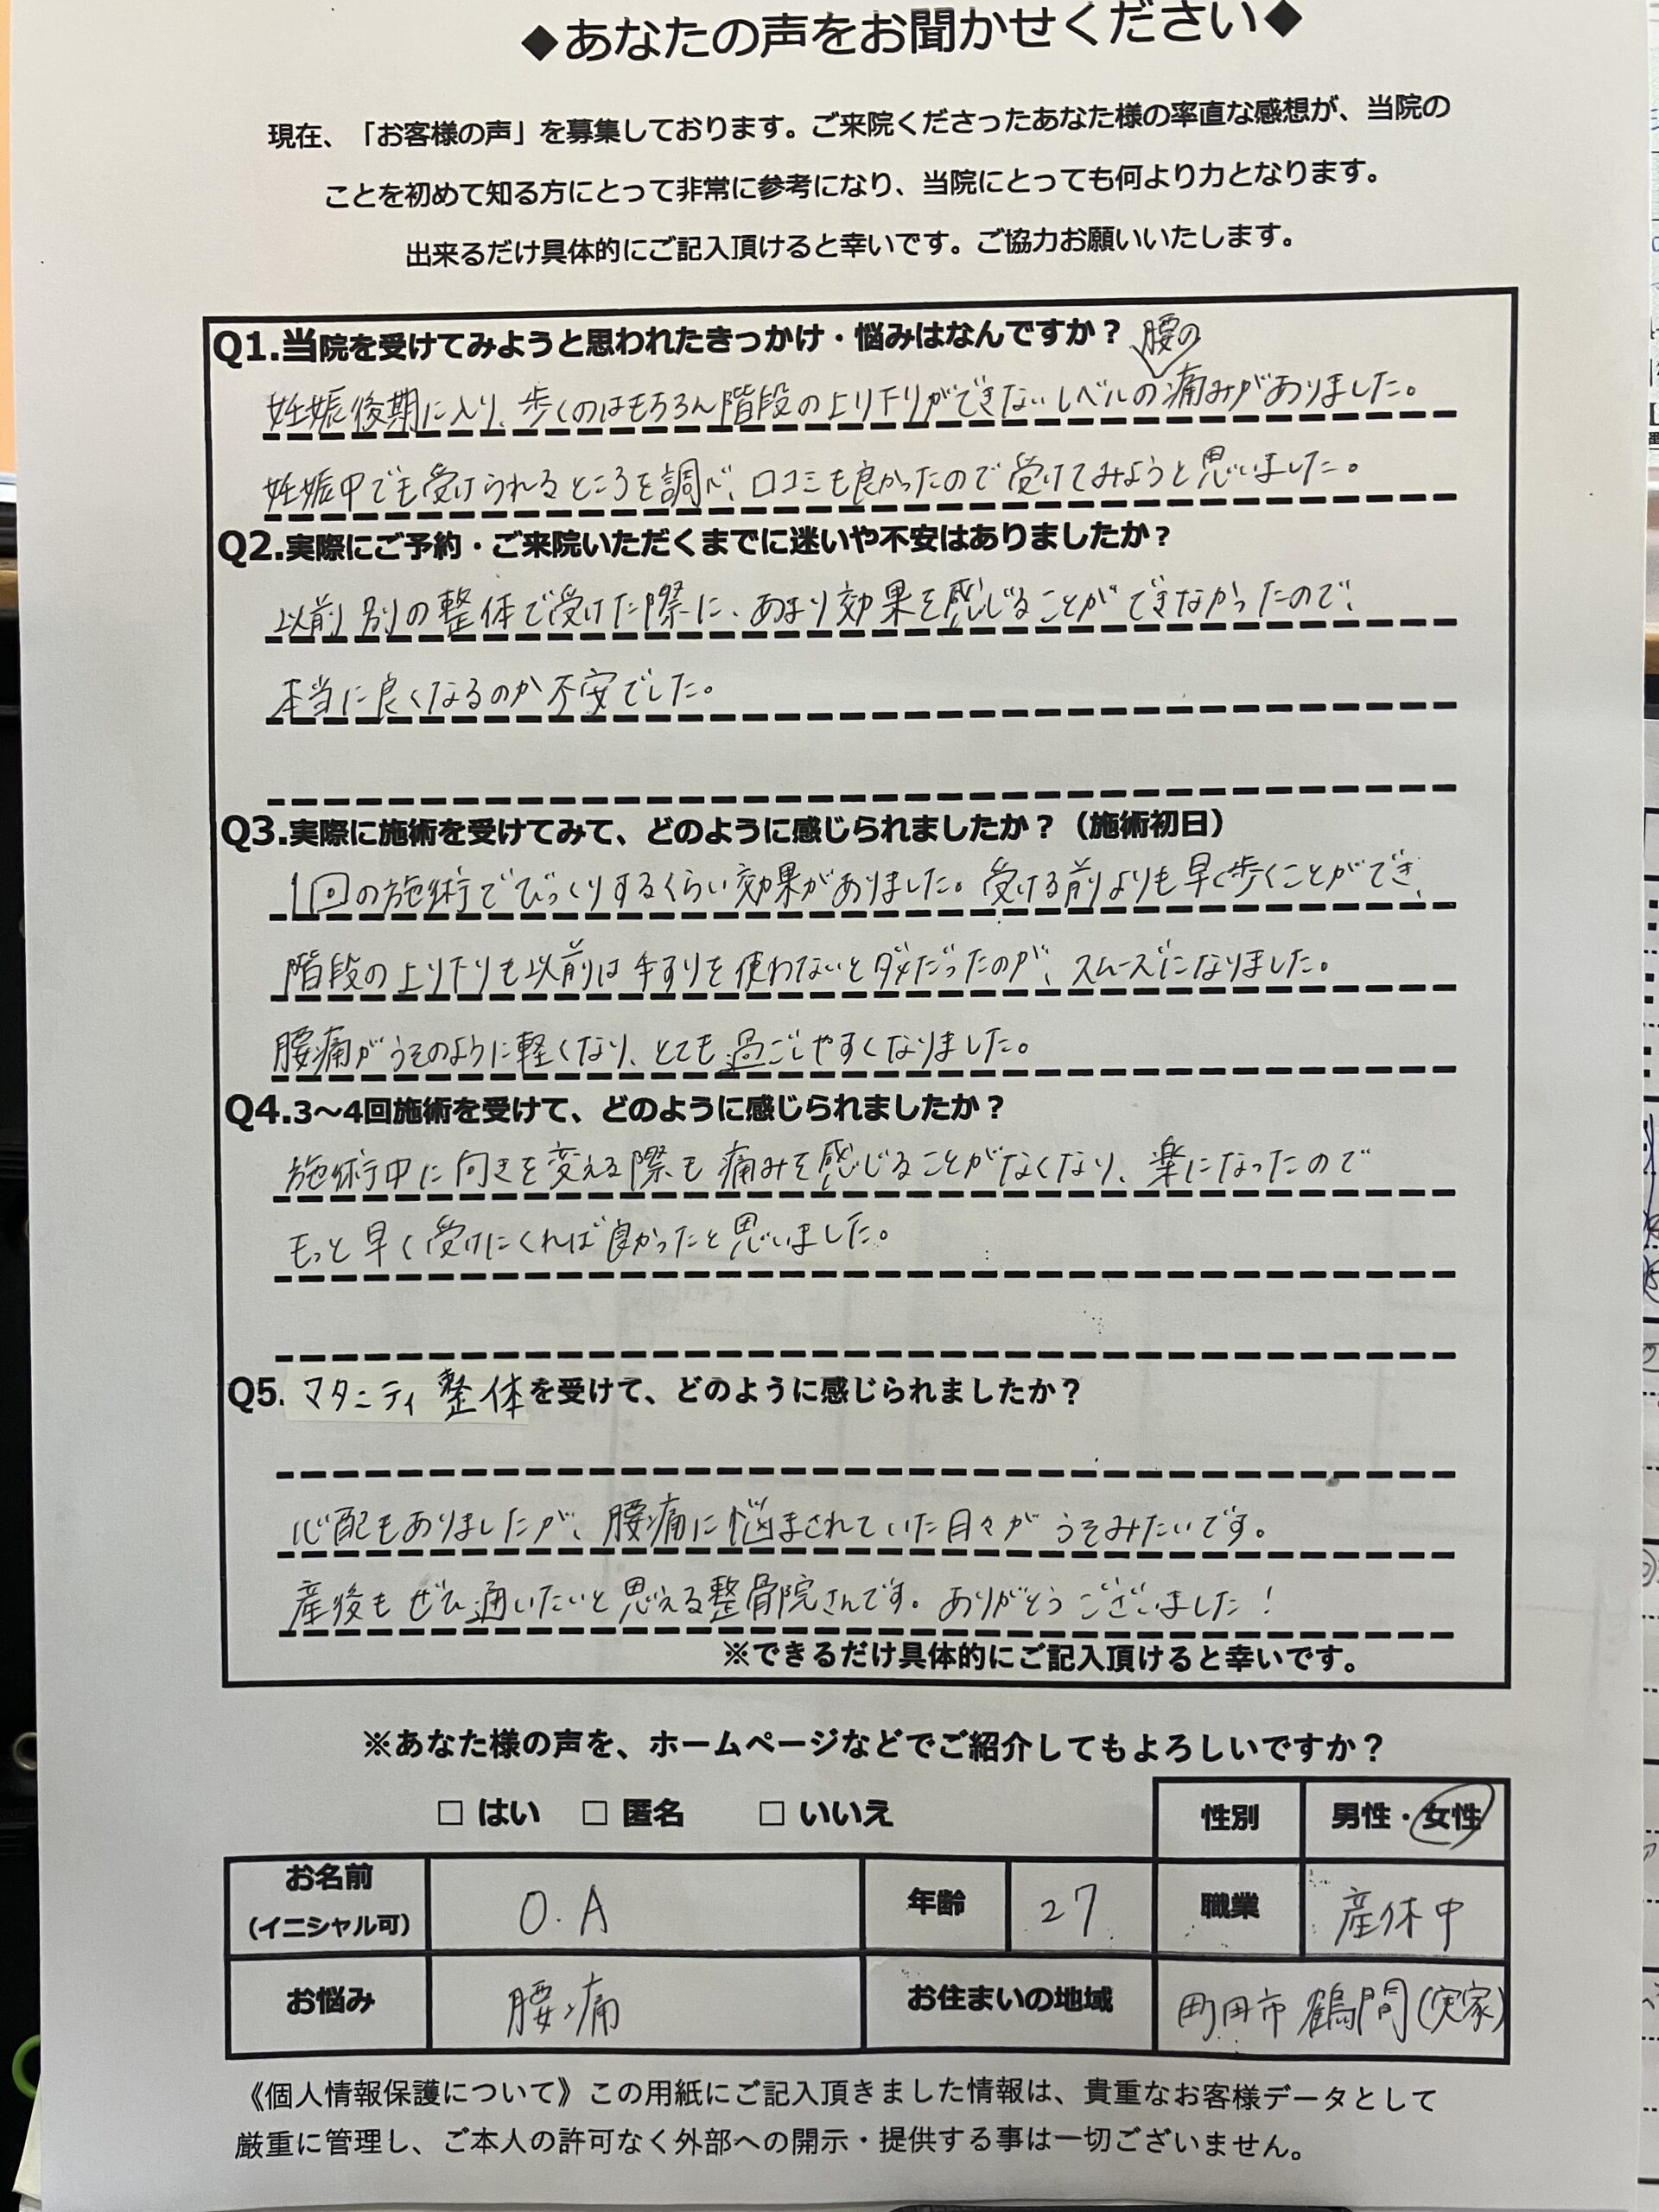 ◆あなたの声をお聞かせください◆
現在、「お客様の声」を募集しております。ご来院くださったあなた様の率直な感想が、当院の
ことを初めて知る方にとって非常に参考になり、当院にとっても何より力となります。
出来るだけ具体的にご記入頂けると幸いです。ご協力お願いいたします。
Q1.当院を受けてみようと思われたきっかけ・悩みはなんですか？
腰の
妊娠後期に入り、歩くのはもちろん階段の上り下りができないレベルの痛みがありました。
妊娠中でも受けられるところを調べ、口コミも良かったので受けてみようと思いました。
Q2.実際にご予約・ご来院いただくまでに迷いや不安はありましたか？
以前別の整体で受けた際に、あまり効果を感じることができなかったので、
本当に良くなるのか不安でした。
Q3.実際に施術を受けてみて、どのように感じられましたか？（施術初日）
1回の施術でびっくりするくらい効果がありました。受ける前よりも早く歩くことができ、
階段の上り下りも以前は手すりを使わないとダメだったのが、スムーズになりました。
腰痛がうそのように軽くなり、とても過ごしやすくなりました。
Q4.3～4回施術を受けて、どのように感じられましたか？
施術中に向きを変える際も痛みを感じることがなくなり、楽になったので
もっと早く受けにくれば良かったと思いました。
Q5.マタニティ整体を受けて、どのように感じられましたか？
心配もありましたが、腰痛に悩まされていた日々がうそみたいです。
産後もぜひ通いたいと思える整骨院さんです。ありがとうございました！
※できるだけ具体的にご記入頂けると幸いです。
※あなた様の声を、ホームページなどでご紹介してもよろしいですか？
□ はい □ 匿名 □ いいえ
性別 男性・女性
お名前（イニシャル可） O.A 年齢 27 職業 産休中
お悩み 腰痛 お住まいの地域 町田市 鶴間(実家)
《個人情報保護について》この用紙にご記入頂きました情報は、貴重なお客様データとして
厳重に管理し、ご本人の許可なく外部への開示・提供する事は一切ございません。